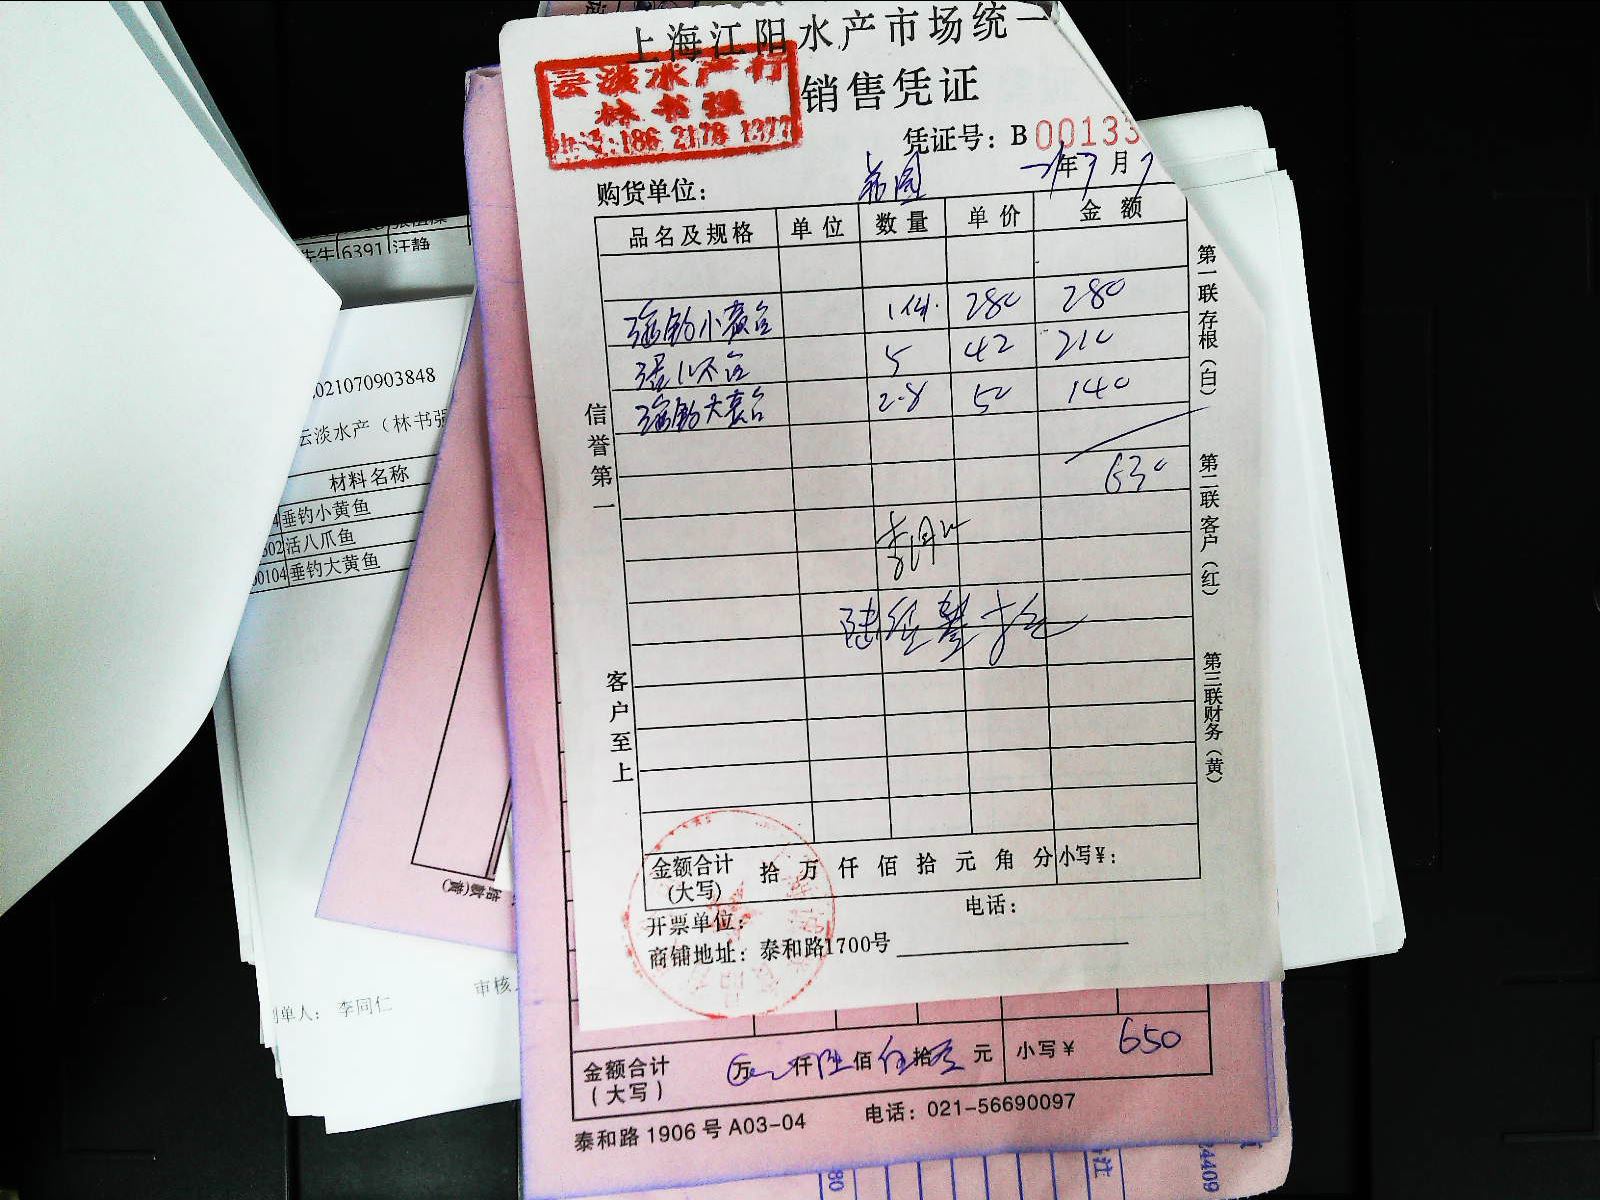 上海江阳水产市场统一
销售凭证
云淡水产行
林书强
电话:186 2178 1277
凭证号: B 00133
年 7 月 7
购货单位:
品名及规格 单位 数量 单价 金额
垂钓小黄鱼 280 280
5 42 210
垂钓大黄鱼 2.8 50 140
630
信誉第一
客户至上
第一联存根(白)
第二联客户(红)
第三联财务(黄)
金额合计 拾 万 仟 佰 拾 元 角 分 小写¥:
(大写)
开票单位: 电话:
商铺地址: 泰和路1700号
金额合计 万 仟 陆 佰 伍 拾 元 小写¥ 650
(大写)
泰和路 1906 号 A03-04 电话: 021-56690097
先生 6391 汪静
021070903848
云淡水产 (林书强
材料名称
垂钓小黄鱼
602 活八爪鱼
00104 垂钓大黄鱼
制单人: 李同仁 审核
80
24409